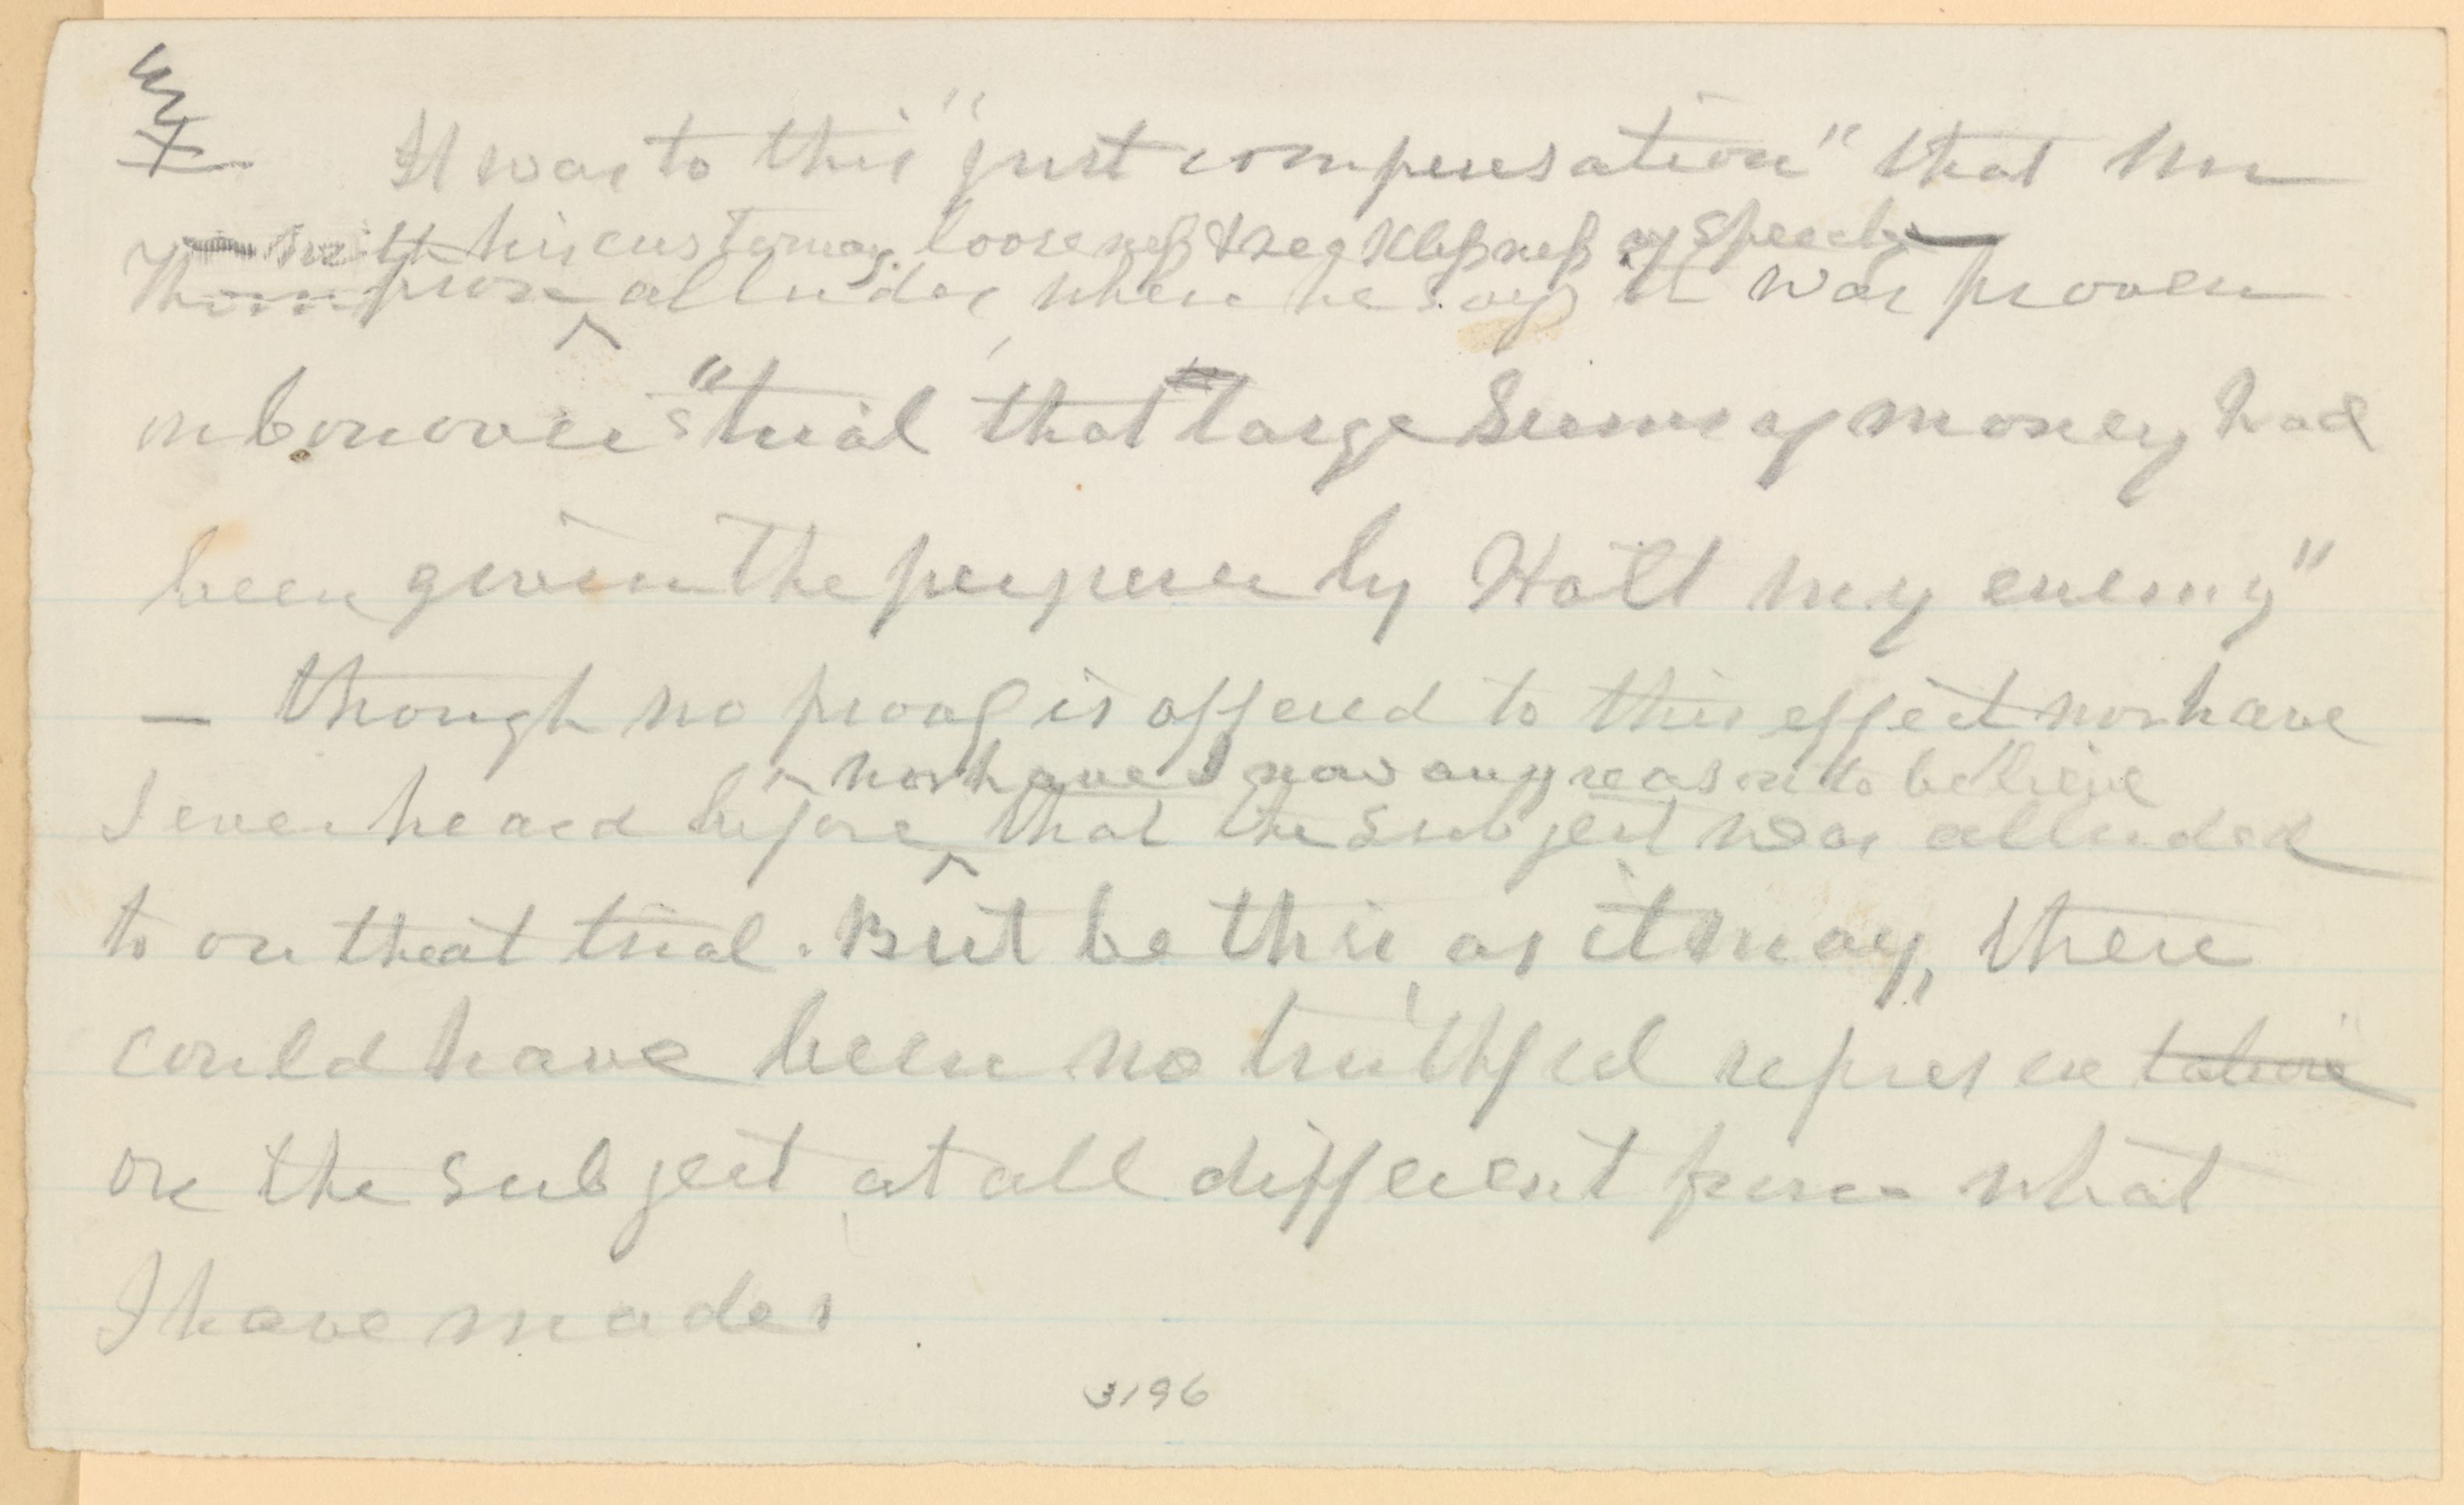 It was to this "just compensation" that Mr
with his customary looseness & recklessness of speech
Thompson alludes, when he says it was proven
on Conover's "trial that large sums of money had
been given the perjurer by Holt my enemy"
— though no proof is offered to this effect nor have
nor have I now any reason to believe
I ever heard before that the subject was alluded
to on that trial. But be this as it may, there
could have been no truthful representation
on the subject at all different from what
I have made
3196